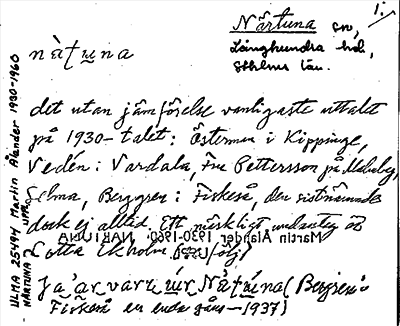 1.
Närtuna sn,
Långhundra hd,
Sthlms län.
nạ̀ṭụna
det utan jämförelse vanligaste uttalet
på 1930-talet: Österman i Kippinge,
Vedén i Vardala, Fru Pettersson på
Selma, Berggren i Fiskeså, den sistnämnde
dock ej alltid. Ett märkligt undantag är
Lotta Ekholm
(Berggren i
Fiskeså en enda gång -1937)
ULMA 25494 Martin Ålander 1930-1960
NÄRTUNA UPPL.
Martin Ålander 1930-1960. NÄRTUNA